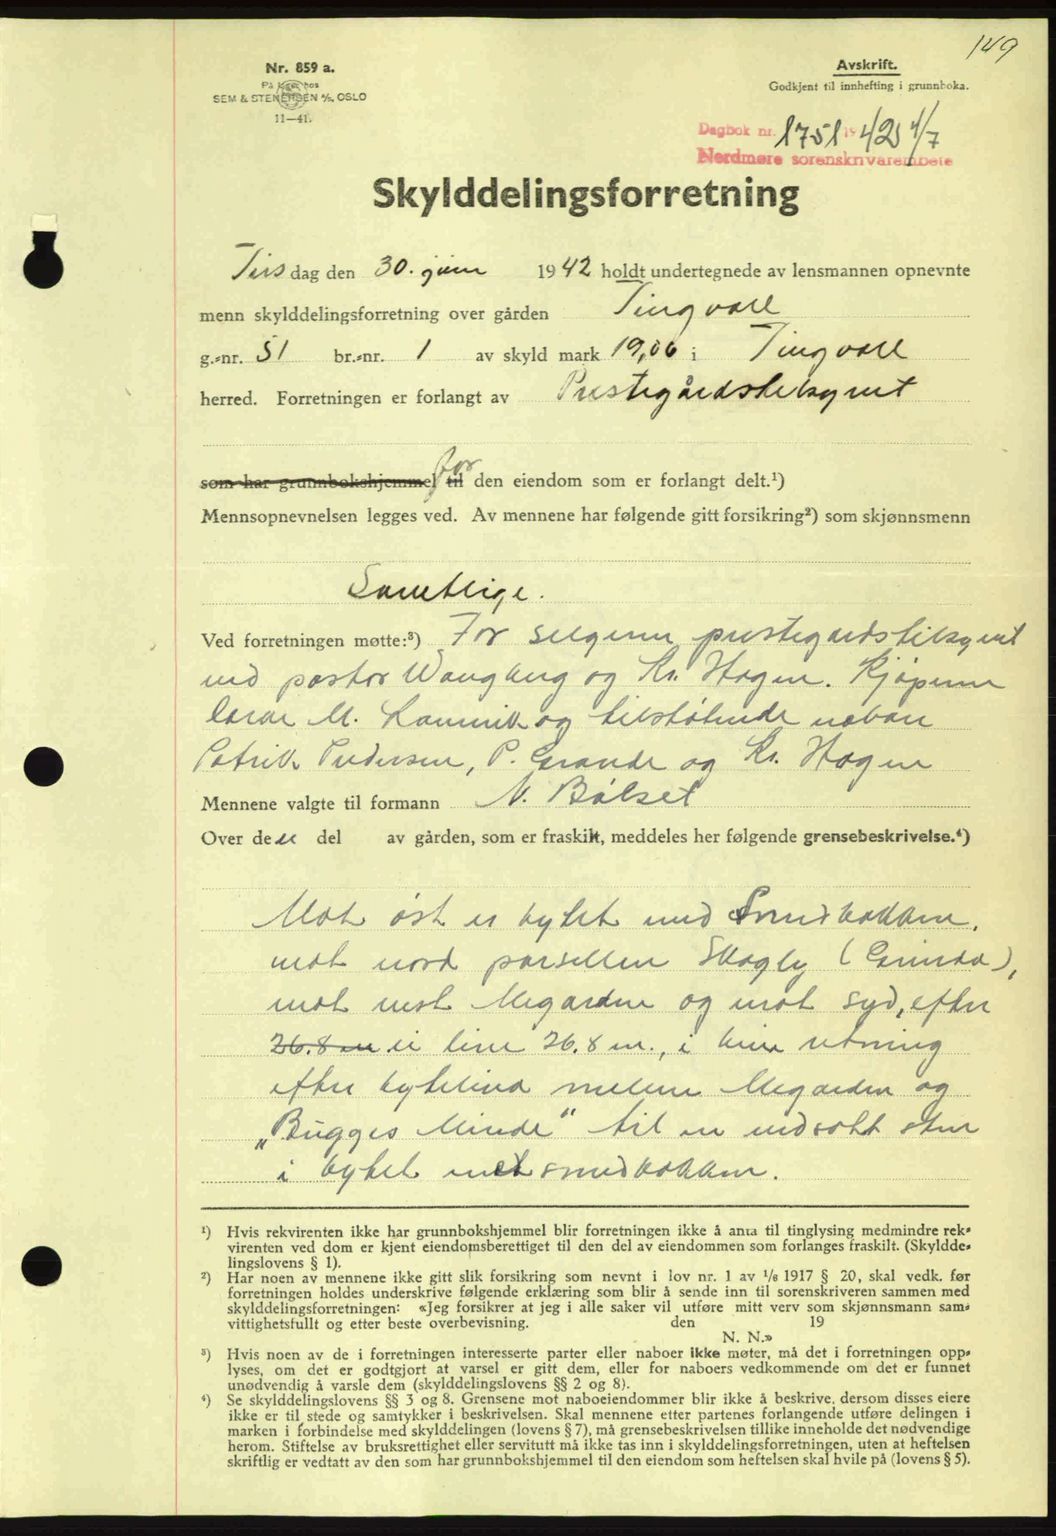 149
Nr. 859 a.
På lager hos
SEM & STENERSEN A/S, OSLO
11—41.
Avskrift.
Godkjent til innhefting i grunnboka.
Dagbok nr. 1751 19 42 4/7
Nordmøre sorenskriverembete
Skylddelingsforretning
Tirsdag den 30. juni 1942 holdt undertegnede av lensmannen opnevnte
menn skylddelingsforretning over gården Tingvoll
g.-nr. 51 br.-nr. 1 av skyld mark 19,06 i Tingvoll
herred. Forretningen er forlangt av Prestegårdstilsynet
som har grunnbokshjemmel til for den eiendom som er forlangt delt.¹)
Mennsopnevnelsen legges ved. Av mennene har følgende gitt forsikring²) som skjønnsmenn
Samtlige.
Ved forretningen møtte:³) For selgeren prestegardstilsynet
ved pastor Wangberg og Kr. Hagen. Kjøperen
M. og tilstøtende naboer
Patrik Pedersen, P. Grande og Kr. Hagen
Mennene valgte til formann N. Bølset
Over den del av gården, som er fraskilt, meddeles her følgende grensebeskrivelse.⁴)
Mot øst er bytet med Smedbakken,
mot nord parsellen Skogly (Grinda),
mot vest Megarden og mot syd, efter
26.8 m ei line 26.8 m., i bein retning
efter bytelina mellem Megarden og
„Bugges Minde" til en nedsatt sten
i bytet mot smedbakken.
¹) Hvis rekvirenten ikke har grunnbokshjemmel blir forretningen ikke å anta til tinglysing medmindre rek-
virenten ved dom er kjent eiendomsberettiget til den del av eiendommen som forlanges fraskilt. (Skyldde-
lingslovens § 1).
²) Har noen av mennene ikke gitt slik forsikring som nevnt i lov nr. 1 av 1/6 1917 § 20, skal vedk. før
forretningen holdes underskrive følgende erklæring som blir å sende inn til sorenskriveren sammen med
skylddelingsforretningen: «Jeg forsikrer at jeg i alle saker vil utføre mitt verv som skjønnsmann sam-
vittighetsfullt og etter beste overbevisning. den 19
N. N.»
³) Hvis noen av de i forretningen interesserte parter eller naboer ikke møter, må det i forretningen opp-
lyses, om det er godtgjort at varsel er gitt dem, eller for naboers vedkommende om det er funnet
unødvendig å varsle dem (skylddelingslovens §§ 2 og 8).
⁴) Se skylddelingslovens §§ 3 og 8. Grensene mot naboeiendommer blir ikke å beskrive, dersom disses eiere
ikke er til stede og samtykker i beskrivelsen. Skal mennene etter partenes forlangende utføre delingen i
marken i forbindelse med skylddelingen (lovens § 7), må grensebeskrivelsen tillike inneholde det nødvendige
herom. Stiftelse av bruksrettighet eller servitutt må ikke tas inn i skylddelingsforretningen, uten at heftelsen
skriftlig er vedtatt av den som har grunnbokshjemmel til den eiendom som heftelsen skal hvile på (lovens § 5).